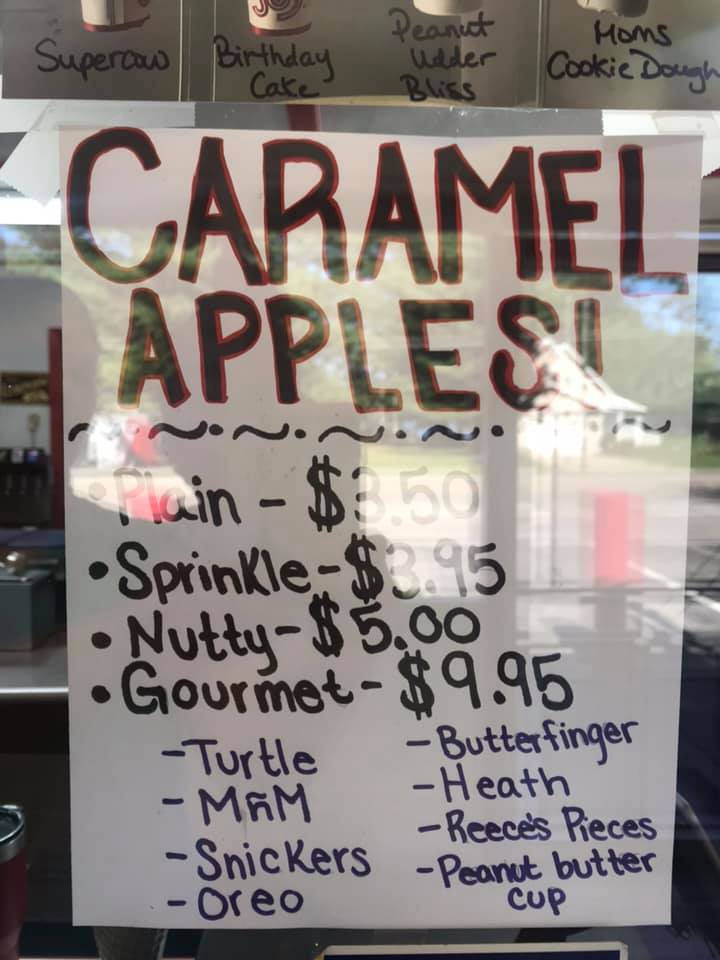 Supercow
Birthday
Cake
Peanut
Udder
Bliss
Moms
Cookie Dough
CARAMEL
APPLES!
• Plain - $3.50
• Sprinkle - $3.95
• Nutty - $5.00
• Gourmet - $9.95
- Turtle
- MñM
- Snickers
- Oreo
- Butterfinger
- Heath
- Reece's Pieces
- Peanut butter
cup